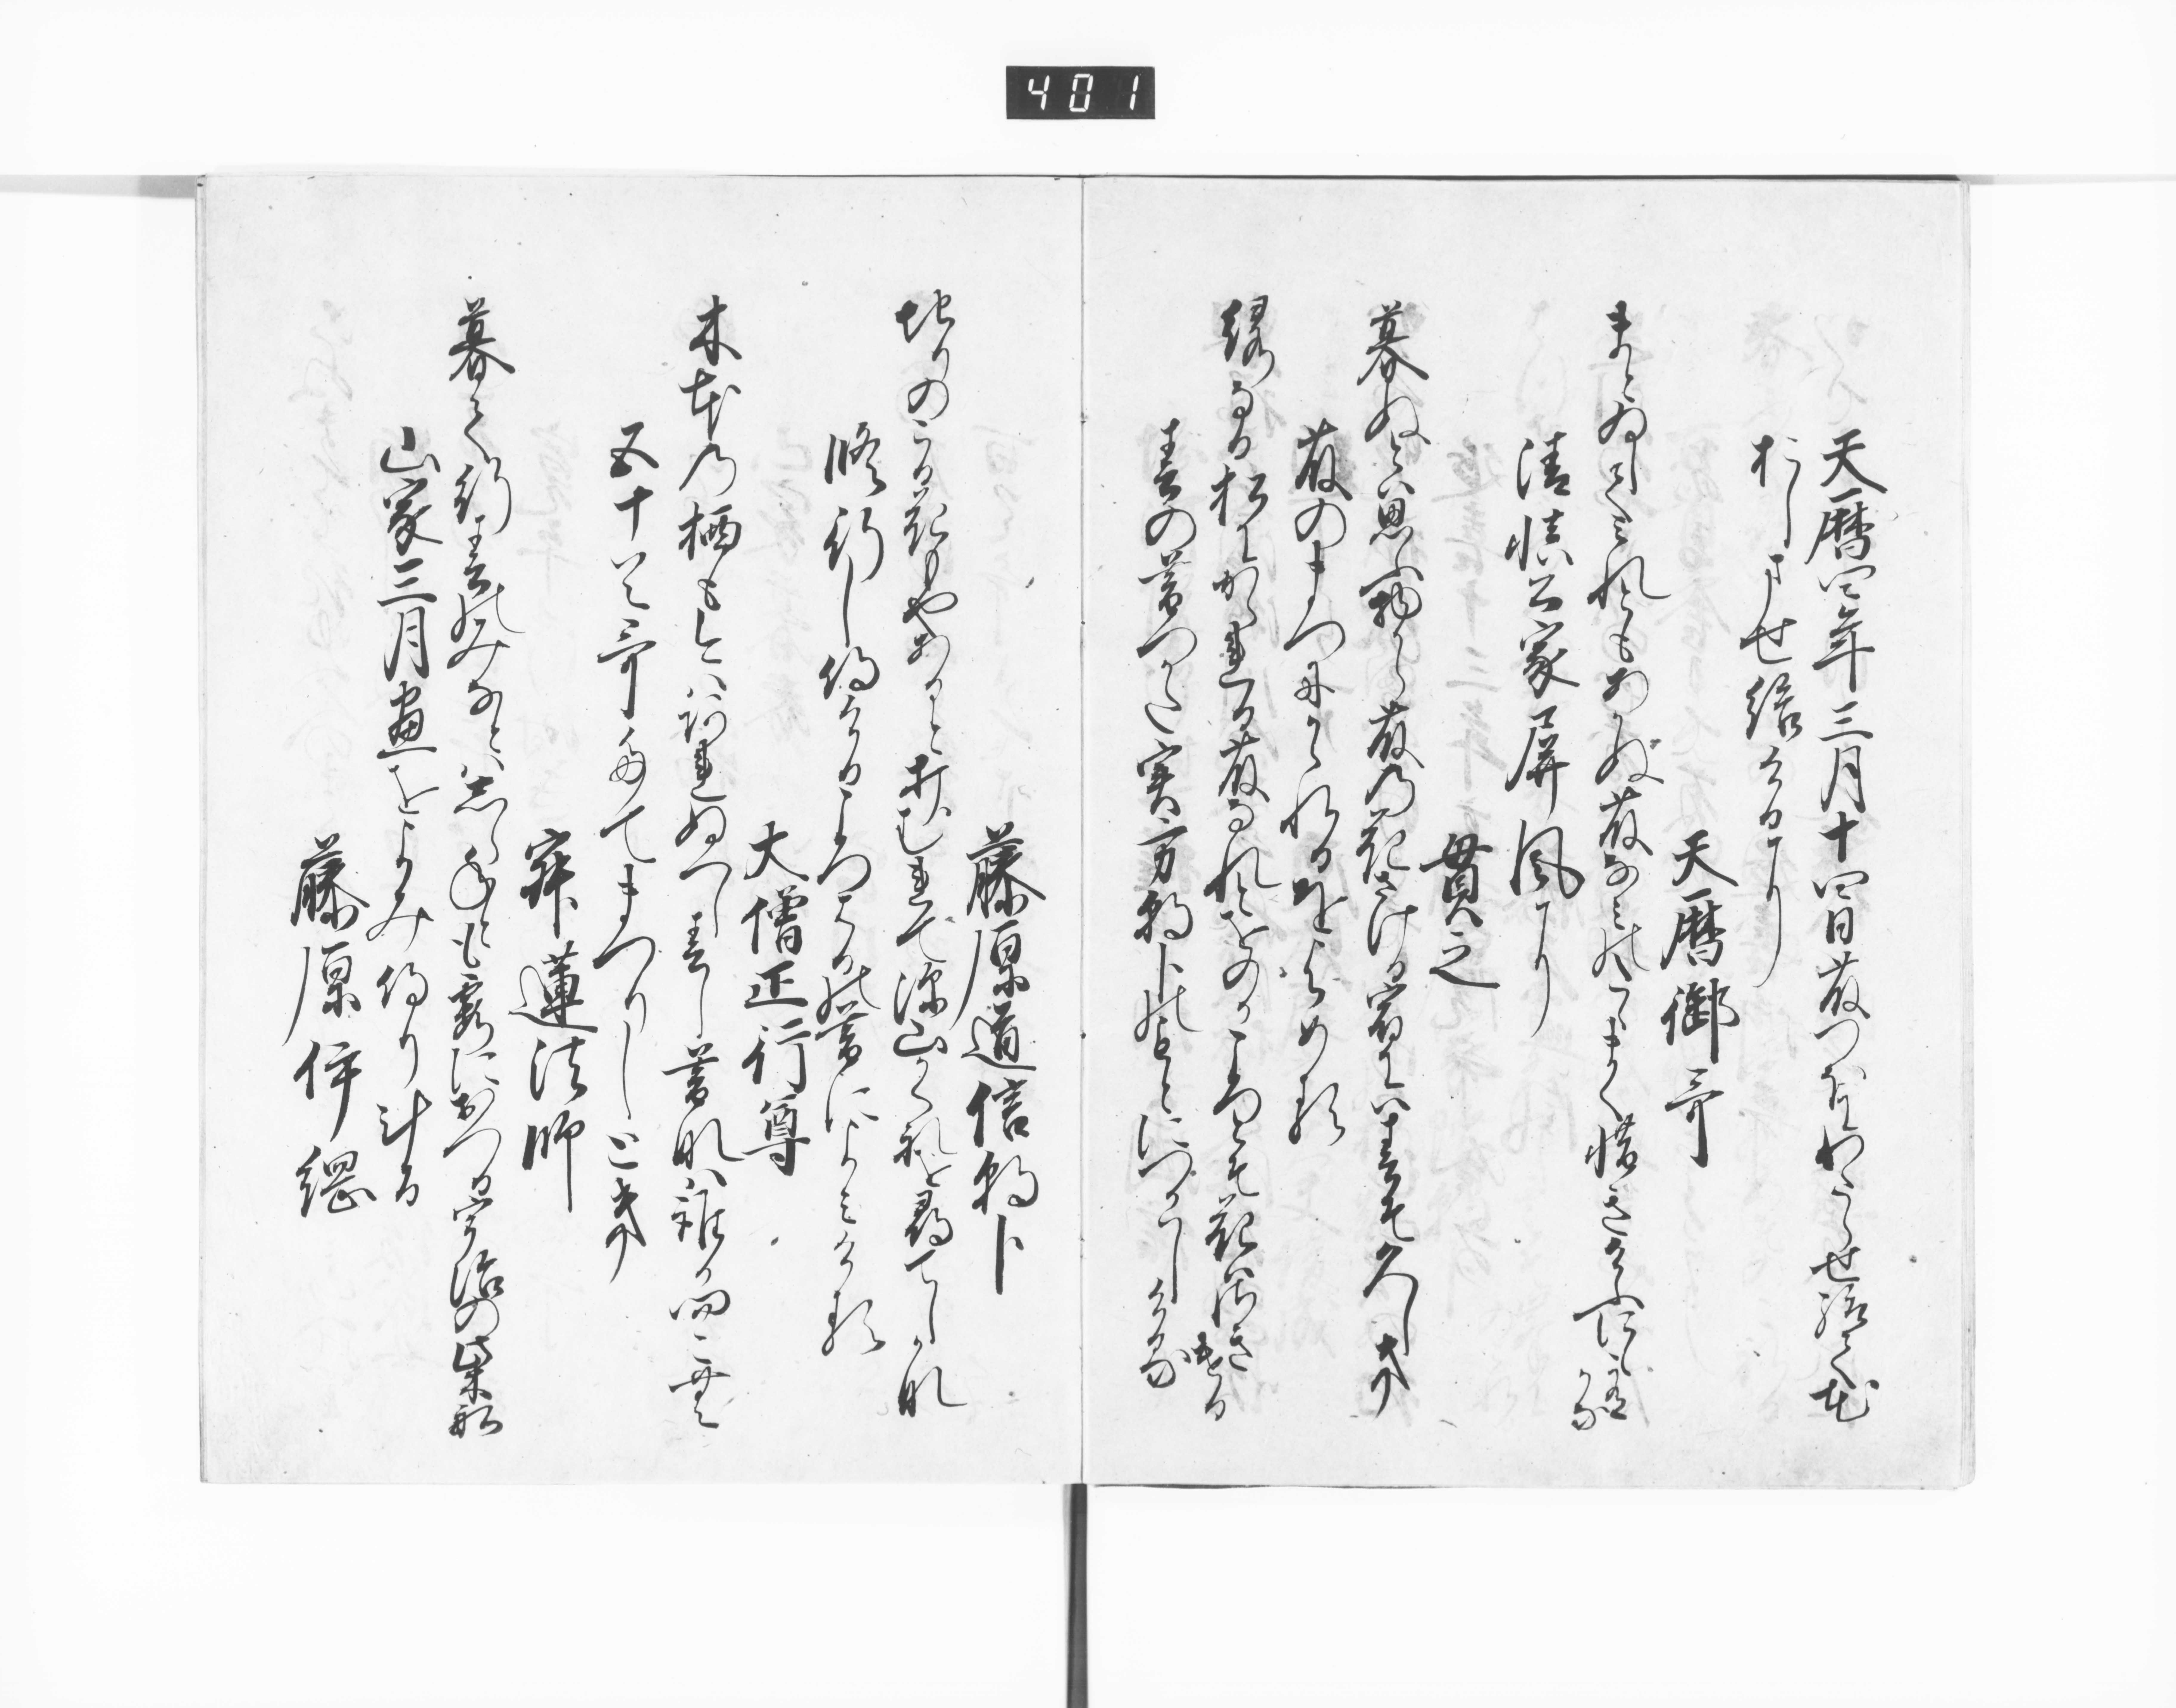 401
天暦四年三月十四日藤つほにわたらせ給て花
おしませ給けるに
天暦御哥
まとゐしてみれともあかぬ藤なみのたゝまく惜きけふにも有かな
清慎公家屏風に
貫之
暮ぬとは思ふ物から藤の花さける宿には春そ久しき
藤のまつにかゝれるをよめる
緑なる松にかゝれる藤なれとをのかころとそ花はさきける
春の暮つかた実方朝臣のもとにつかはしける
藤原道信朝臣
ちりのこる花もやあると打むれて深山かくれを尋てしかな
修行し侍けるころ春の暮によみける
大僧正行尊
木本の栖も今はあれぬへし春し暮なは誰か問こむ
五十首哥たてまつりしとき
寂蓮法師
暮て行春のみなとは志らねとも霞におつる宇治の柴舟
山家三月盡をよみ侍りける
藤原伊綱